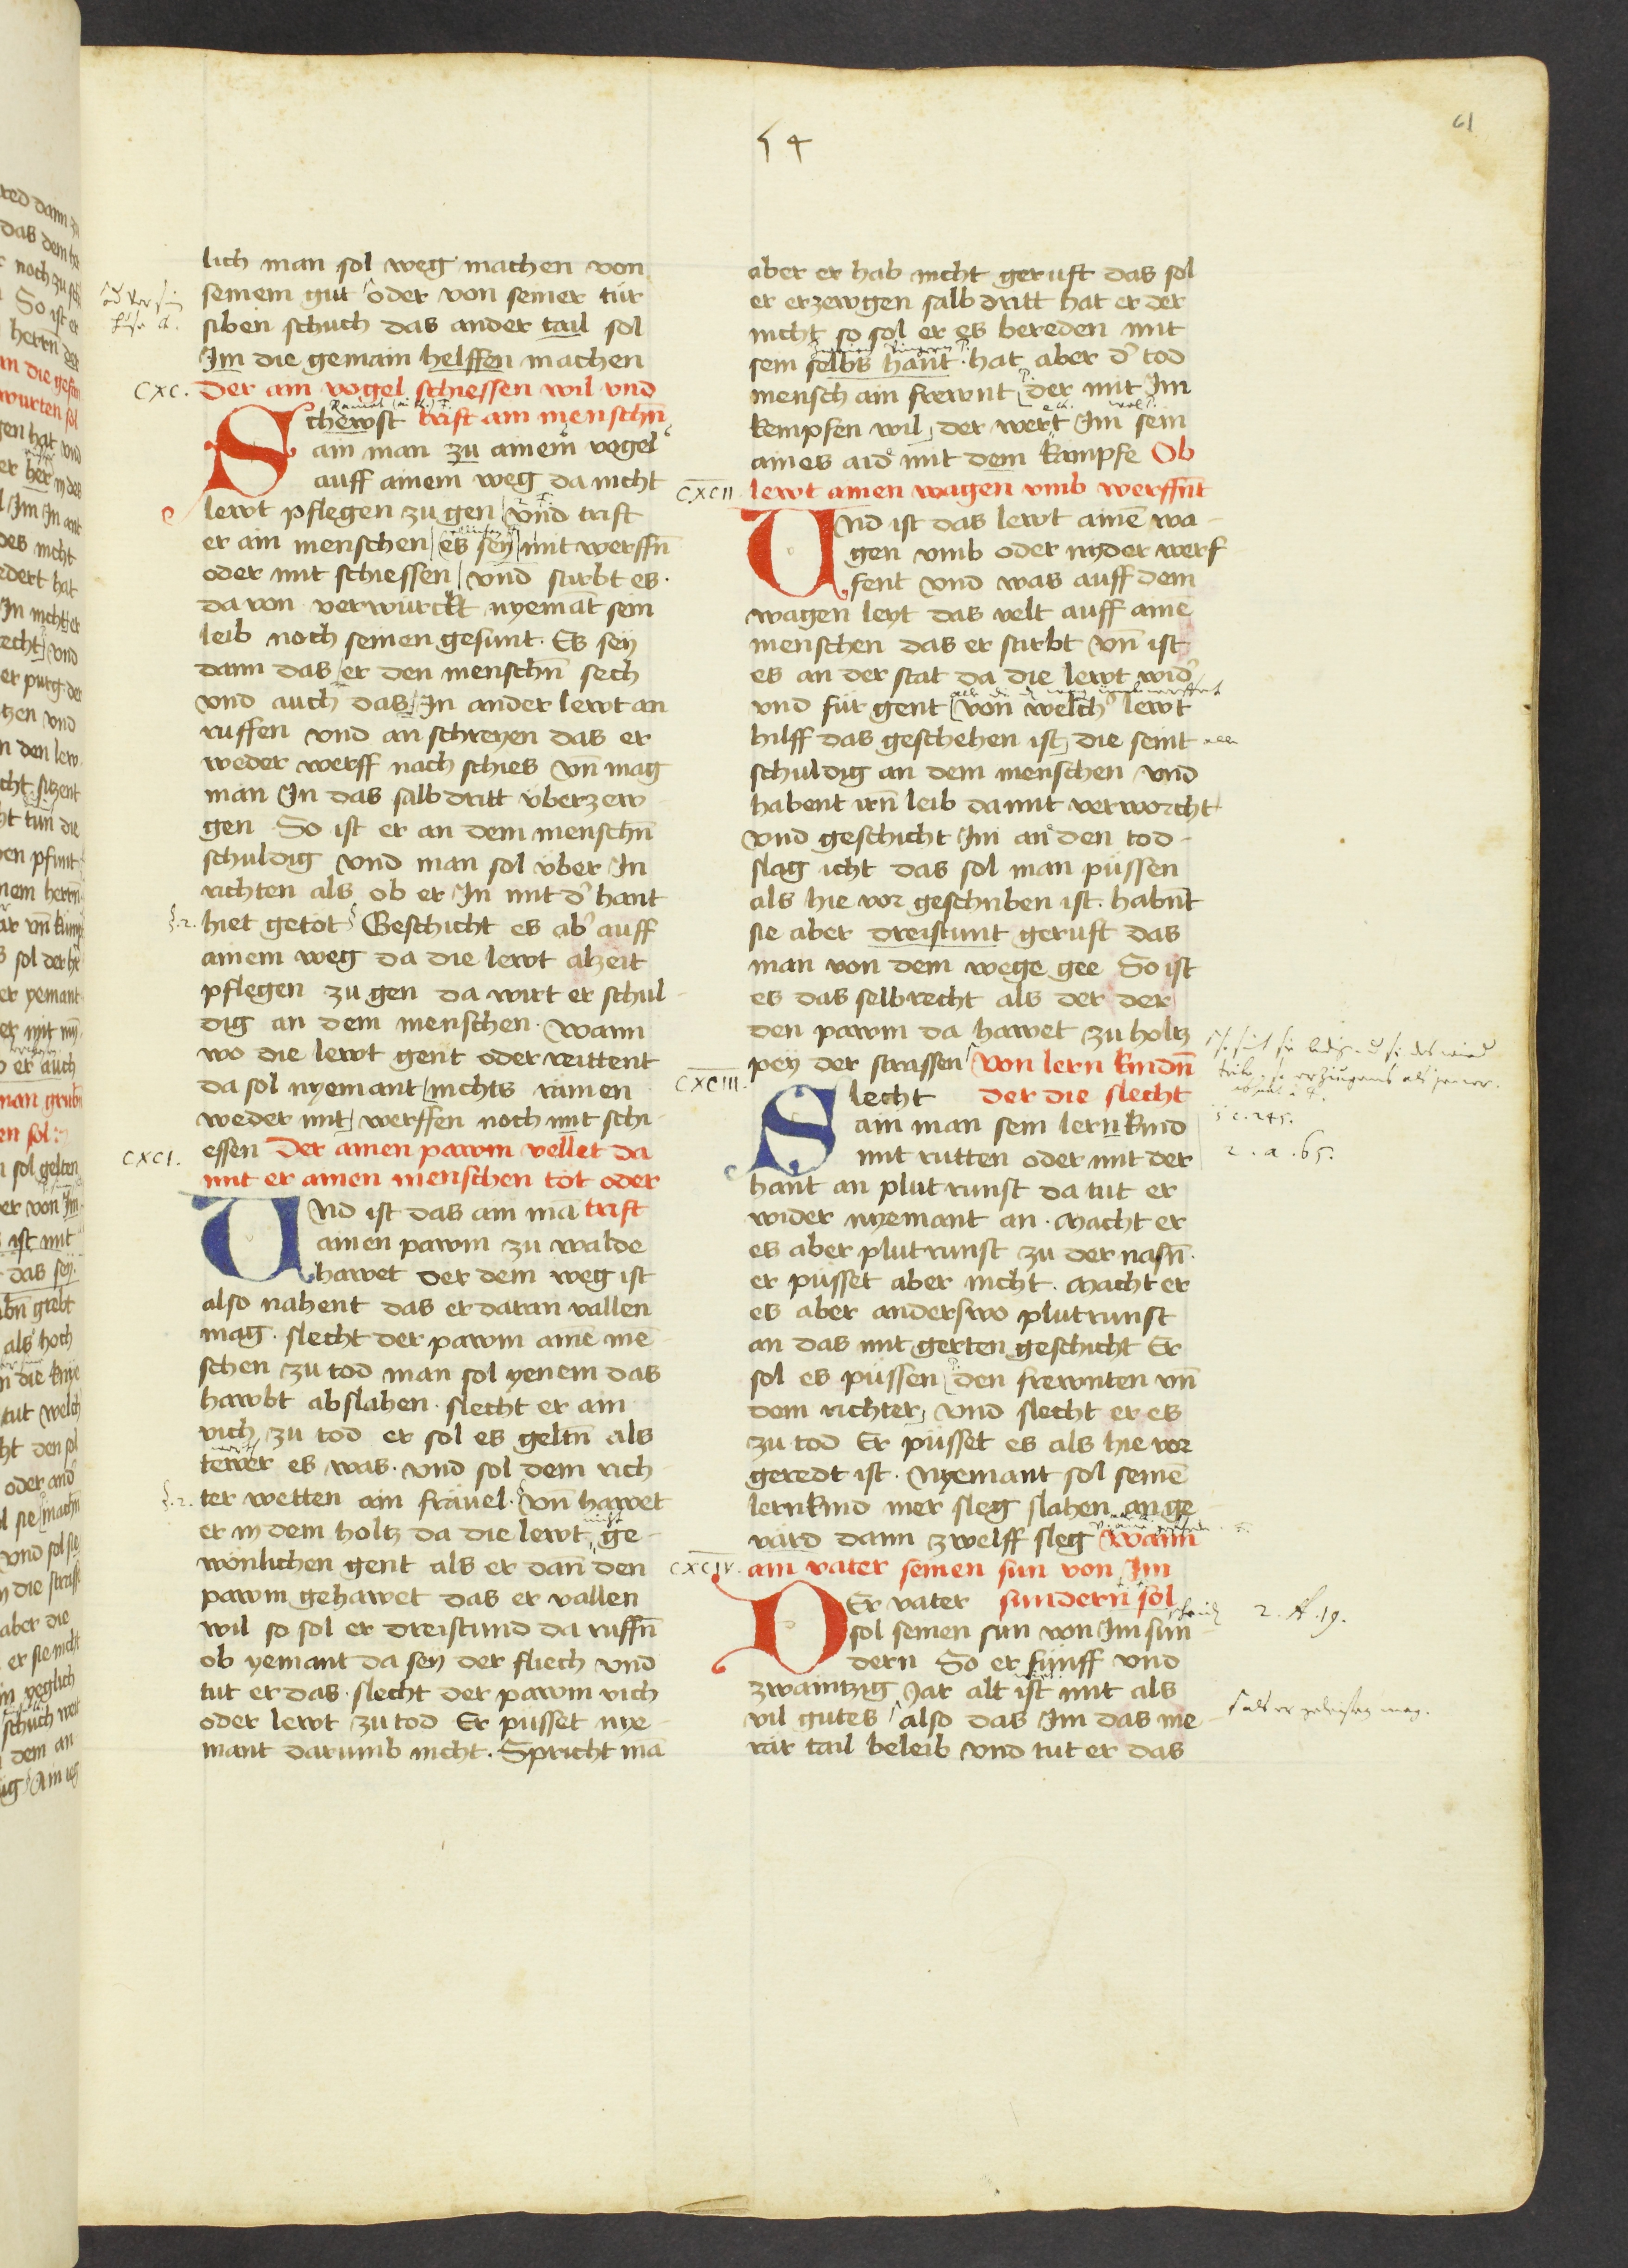 61
54
lich man sol weg machen von
seinem gut oder von seiner tür
siben schuch das ander tail sol
Im die gemain helffen machen
CXC.
Der ain vogel schiessen wil vnd
Schewst trift ain menschn̄
ain man zu ainem vogel
auff ainem weg da nicht
lewt pflegen zu gen vnd trift
er ain menschen es sey mit werffn̄
oder mit schiessen vnd stirbt es
da von verwürckt nyemāt sein
leib noch seinen gesunt. Es sey
dann das er den menschn̄ sech
vnd auch das In ander lewt an
ruffen vnd an schreyen das er
weder werff noch schies vn̄ mag
man In das salb dritt vberzew
gen So ist er an dem menschn̄
schuldig vnd man sol vber In
richten als ob er In mit d' hant
§.2.
hiet getot Geschicht es ab' auff
ainem weg da die lewt alzeit
pflegen zu gen da wirt er schul
dig an dem menschen. wann
wo die lewt gent oder reittent
da sol nyemant nichts ramen
weder mit werffen noch mit schi
CXCI.
essen Der ainen pawm vellet da
mit er ainen menschen tot oder
Vnd ist das ain mā trift
ainen pawm zu walde
hawet der dem weg ist
also nahent das er daran vallen
mag. slecht der pawm ainē mē
schen zu tod man sol yenem das
hawbt abslahen. slecht er ain
vich zu tod er sol es geltn̄ als
tewer es was. vnd sol dem rich
§.2.
ter wetten ain frauel. vn̄ hawet
er in dem holtz da die lewt nicht ge
wonlichen gent als er dan̄ den
pawm gehawet das er vallen
wil so sol er dreistund da ruffn̄
ob yemant da sey der fliech vnd
tut er das. slecht der pawm vich
oder lewt zu tod Er pusset nye
mant darumb nicht. Spricht mā
aber er hab nicht geruft das sol
er erzewgen salb dritt hat er der
nicht so sol er es bereden mit
sein selbs hant. hat aber d' tod
mensch ain frewnt der mit Im
kempfen wil der wert Im sein
aines aid mit dem kampfe Ob
CXCII
lewt ainen wagen vmb werffn̄t
Vnd ist das lewt ainē wa
gen vmb oder nyder werf
fent vnd was auff dem
wagen leyt das velt auff aine
menschen das er stirbt vn̄ ist
es an der stat da die lewt wid'
vnd für gent von welch' lewt
hilff das geschehen ist die seint
schuldig an dem menschen vnd
habent irn̄ leib damit verworcht
vnd geschicht Im an den tod
slag icht das sol man püssen
als hie vor geschriben ist. habn̄t
sie aber dreistunt geruft das
man von dem wege gee So ist
es das selb recht als der der
den pawm da hawet zu holtz
pey der strassen Von lern kindn̄
CXCIII.
Slecht der die slecht
ain man sein lernkind
mit rutten oder mit der
hant an plutrunst da tut er
wider nyemant an. Macht er
es aber plutrunst zu der nasn̄
er püsset aber nicht. Macht er
es aber anderswo plutrunst
an das mit gerten geschicht Er
sol es püssen den frewnten vn̄
dem richter vnd slecht er es
zu tod Er püsset es als hie vor
geredt ist. Nyemant sol seinē
lernkind mer sleg slahen an ge
vard dann zwelff sleg Wann
CXCIV.
ain vater seinen sun von Im
Der vater sundern sol
sol seinen sun von Im sun
dern So er fünff vnd
zwaintzig Jar alt ist mit als
vil gutes also das Im das me
rar tail beleib vnd tut er das
§ c. 245.
2. a. 65.
2. f. 19.